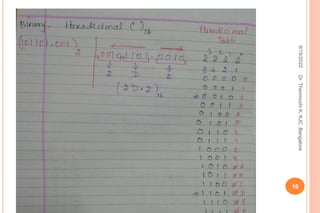 Binary - Hexadecimal ( )16
(101101.001)2
0010 1101 . 0010
2 D 2
(2D.2)16
Hexadecimal
Table
3 2 1 0
2 2 2 2
8 4 2 1
0 0 0 0 0
0 0 0 1 1
0 0 1 0 2
0 0 1 1 3
0 1 0 0 4
0 1 0 1 5
0 1 1 0 6
0 1 1 1 7
1 0 0 0 8
1 0 0 1 9
1 0 1 0 A
1 0 1 1 B
1 1 0 0 C
1 1 0 1 D
1 1 1 0 E
9/15/2022
Dr. Thermuzhi K, KJC ,Bangalore
10